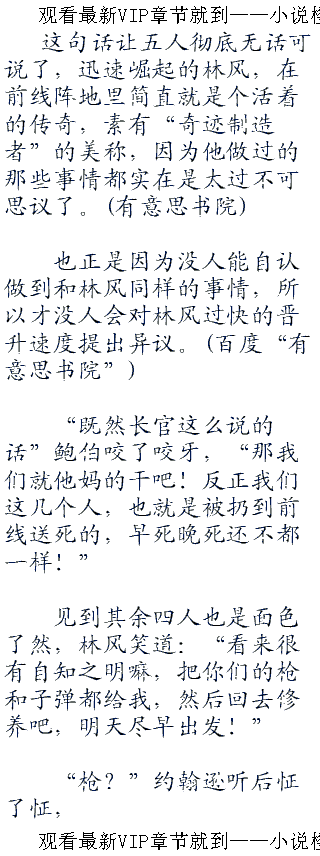 观看最新VIP章节就到——小说检
这句话让五人彻底无话可
说了，迅速崛起的林风，在
前线阵地里简直就是个活着
的传奇，素有“奇迹制造
者”的美称，因为他做过的
那些事情都实在是太过不可
思议了。(有意思书院)
也正是因为没人能自认
做到和林风同样的事情，所
以才没人会对林风过快的晋
升速度提出异议。(百度“有
意思书院”)
“既然长官这么说的
话”鲍伯咬了咬牙，“那我
们就他妈的干吧！反正我们
这几个人，也就是被扔到前
线送死的，早死晚死还不都
一样！”
见到其余四人也是面色
了然，林风笑道：“看来很
有自知之明嘛，把你们的枪
和子弹都给我，然后回去修
养吧，明天尽早出发！”
“枪？”约翰逊听后怔
了怔，
观看最新VIP章节就到——小说检